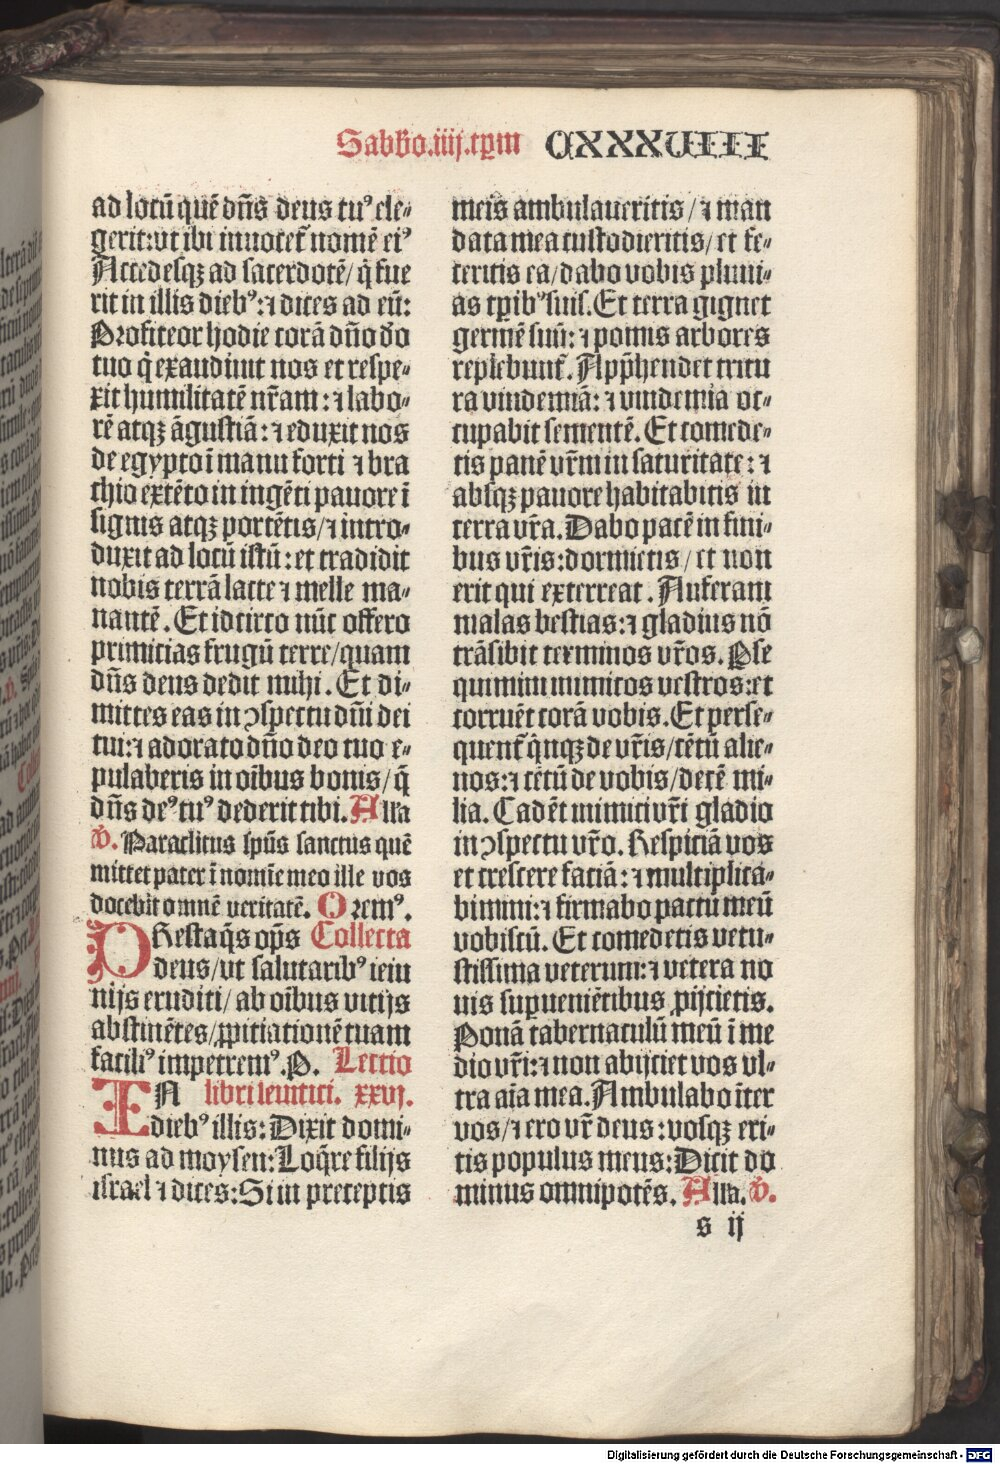 Sabbo.iiij.tꝑm CXXXVIIII
ad locū quē dn̄s deus tuꝰ ele⸗
gerit:vt ibi inuocet᷑ nomē eiꝰ
Accedesqꝫ ad sacerdotē/ q̇ fue
rit in illis diebꝰ: ⁊ dices ad eū:
Profiteor hodie corā dn̄o do
tuo q̇ exaudiuit nos et respe⸗
xit humilitatē nr̄am : ⁊ labo⸗
rē atqꝫ āgustiā: ⁊ eduxit nos
de egypto ī manu forti ⁊ bra
chio extēto in ingēti pauore ī
signis atqꝫ portētis/ ⁊ intro⸗
duxit ad locū istū: et tradidit
nobis terrā lacte ⁊ melle ma⸗
nantē . Et idcirco nūc offero
primicias frugū terre/quam
dn̄s deus dedit mihi . Et di⸗
mittes eas in ↄspectu dn̄i dei
tui: ⁊ adorato dn̄o deo tuo e⸗
pulaberis in oībus bonis/ q̄
dn̄s deꝰ tuꝰ dederit tibi. Alla
V̇. Paraclitus spūs sanctus quē
mittet pater ī nomīe meo ille vos
docebit omnē veritatē. Oremꝰ.
PRestaq̄s op̄s Collecta
deus/ vt salutaribꝰ ieiu
nijs eruditi/ ab oībus vitijs
abstinētes/ ꝓpitiationē tuam
faciliꝰ impetremꝰ. P. Lectio
IN libri leuitici. xxvj.
diebꝰ illis: Dixit domi⸗
nus ad moysen: Loq̄re filijs
israel ⁊ dices: Si in preceptis
meis ambulaueritis/ ⁊ man
data mea custodieritis/ et fe⸗
ceritis ea/ dabo vobis pluui⸗
as tꝑibꝰ suis. Et terra gignet
germē suū: ⁊ pomis arbores
replebunt᷑. App̄hendet tritu
ra vindemiā: ⁊ vindemia oc⸗
cupabit sementē. Et comede⸗
tis panē vr̄m in saturitate: ⁊
absqꝫ pauore habitabitis in
terra vr̄a. Dabo pacē in fini⸗
bus vr̄is: dormietis/ et non
erit qui exterreat . Auferam
malas bestias: ⁊ gladius nō
trāsibit terminos vr̄os. Pse
quimini inimicos vestros: et
corruēt corā vobis. Et perse⸗
quent᷑ q̇nqꝫ de vr̄is/ cētū alie⸗
nos: ⁊ cētū de vobis/ decē mi⸗
lia. Cadēt inimici vr̄i gladio
in ↄspectu vr̄o. Respiciā vos
et crescere faciā: ⁊ multiplica⸗
bimini: ⁊ firmabo pactū meū
vobiscū. Et comedetis vetu⸗
stissima veterum: ⁊ vetera no
uis suꝑueniētibus ꝓijcietis.
Ponā tabernaculū meū ī me
dio vr̄i: ⁊ non abijciet vos vl⸗
tra aīa mea. Ambulabo īter
vos/ ⁊ ero vr̄ deus: vosqꝫ eri⸗
tis populus meus: Dicit do
minus omnipotēs. Alla. V̇.
s ij
Digitalisierung gefördert durch die Deutsche Forschungsgemeinschaft - DFG